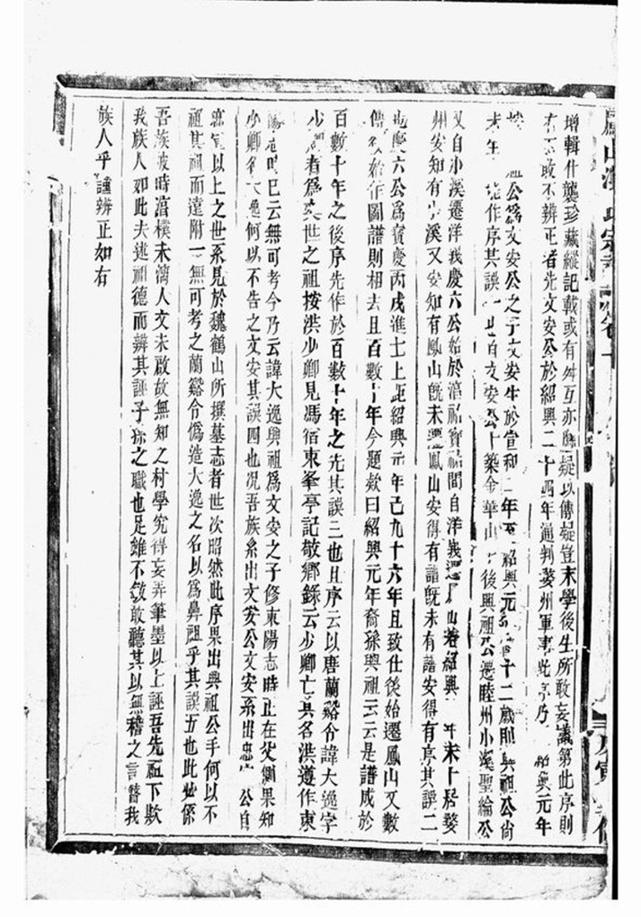 增輯什襲珍藏縱記載或有舛互亦應疑以傳疑豈末學後生所敢妄議第此序則
有不敢不辨正者先文安公於紹興二十四年通判婺州軍事此序乃紹興元年
公爲文安公之子文安生於宣和二年至紹興元年十二歲則興祖公尚
未年作序其誤一也且自文安公卜築金華山後興祖公遷睦州小溪聖綸公
又自小溪遷洋峩慶六公始於淳祐寶祐間自洋峩遷山巷紹興年未卜居婺
州安知有小溪又安知有鳳山旣未遷鳳山安得有譜旣未有譜安得有序其誤二
也慶六公爲寶慶丙戌進士上距紹興元年已九十六年且致仕後始遷鳳山又數
傳後始作圖譜則相去且百數十年今題款曰紹興元年裔孫興祖云云是譜成於
百數十年之後序先作於百數十年之先其誤三也且序云以唐蘭谿令諱大逸字
少卿者爲矣世之祖按洪少卿見馮宿東峯亭記敬鄉錄云少卿亡其名洪遵作東
陽志時已云無可考今乃云諱大逸興祖爲文安之子修東陽志時正在父側果知
少卿名大逸何以不告之文安其誤四也况吾族系出文安公文安系出忠宣公自
忠宣以上之世系見於魏鶴山所撰墓志者世次昭然此序果出興祖公手何以不
祖其祖而遠附一無可考之蘭谿令僞造大逸之名以爲鼻祖乎其誤五也此必係
吾族彼時淳樸未漓人文未啟故無知之村學究得妄弄筆墨以上誣吾先祖下欺
我族人如此夫述祖德而辨其誣子孫之職也足雖不敏敢聽其以無稽之言瞀我
族人乎謹辨正如右